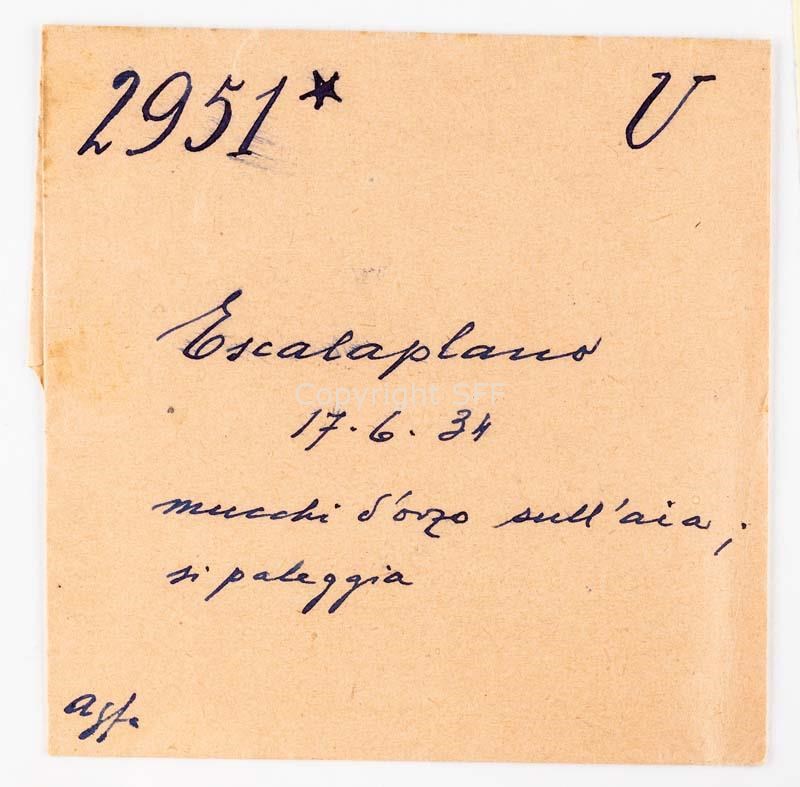 2951* V
Escalaplano
Copyright SFF
17.6.34
mucchi d'orzo sull'aia;
si paleggia
agfa